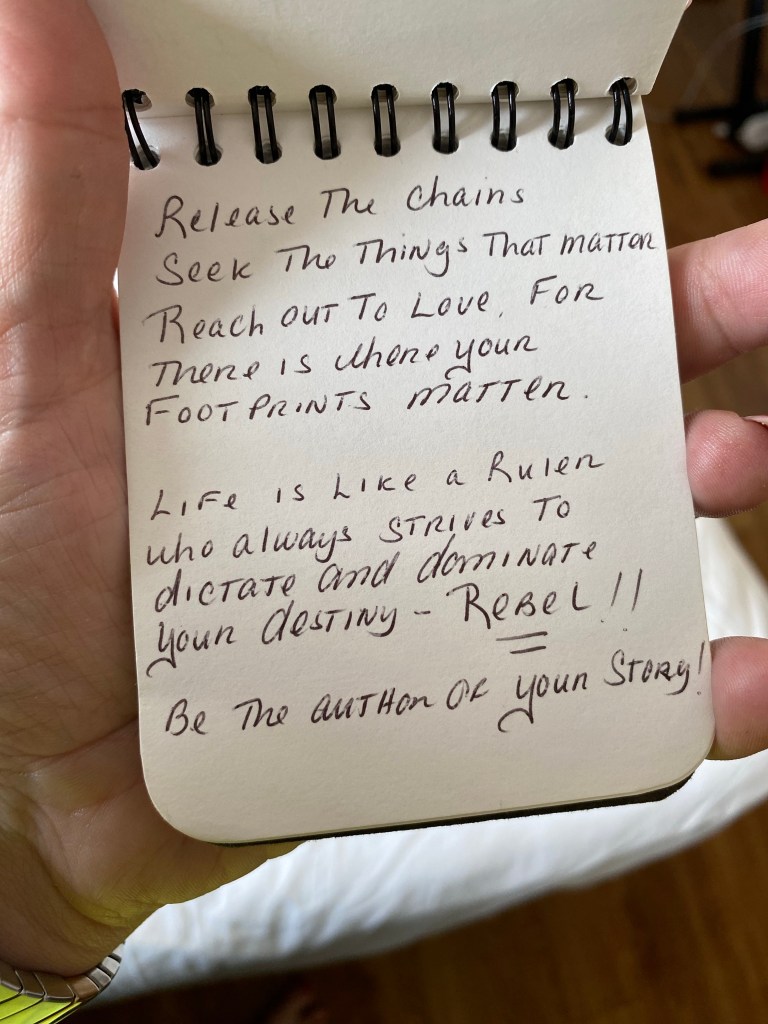 Release The Chains
Seek The Things That matter
Reach out To Love, For
There is where your
FootPrints matter.
Life is Like a Ruler
who always strives to
dictate and dominate
your destiny - Rebel!!
Be The author of your Story!